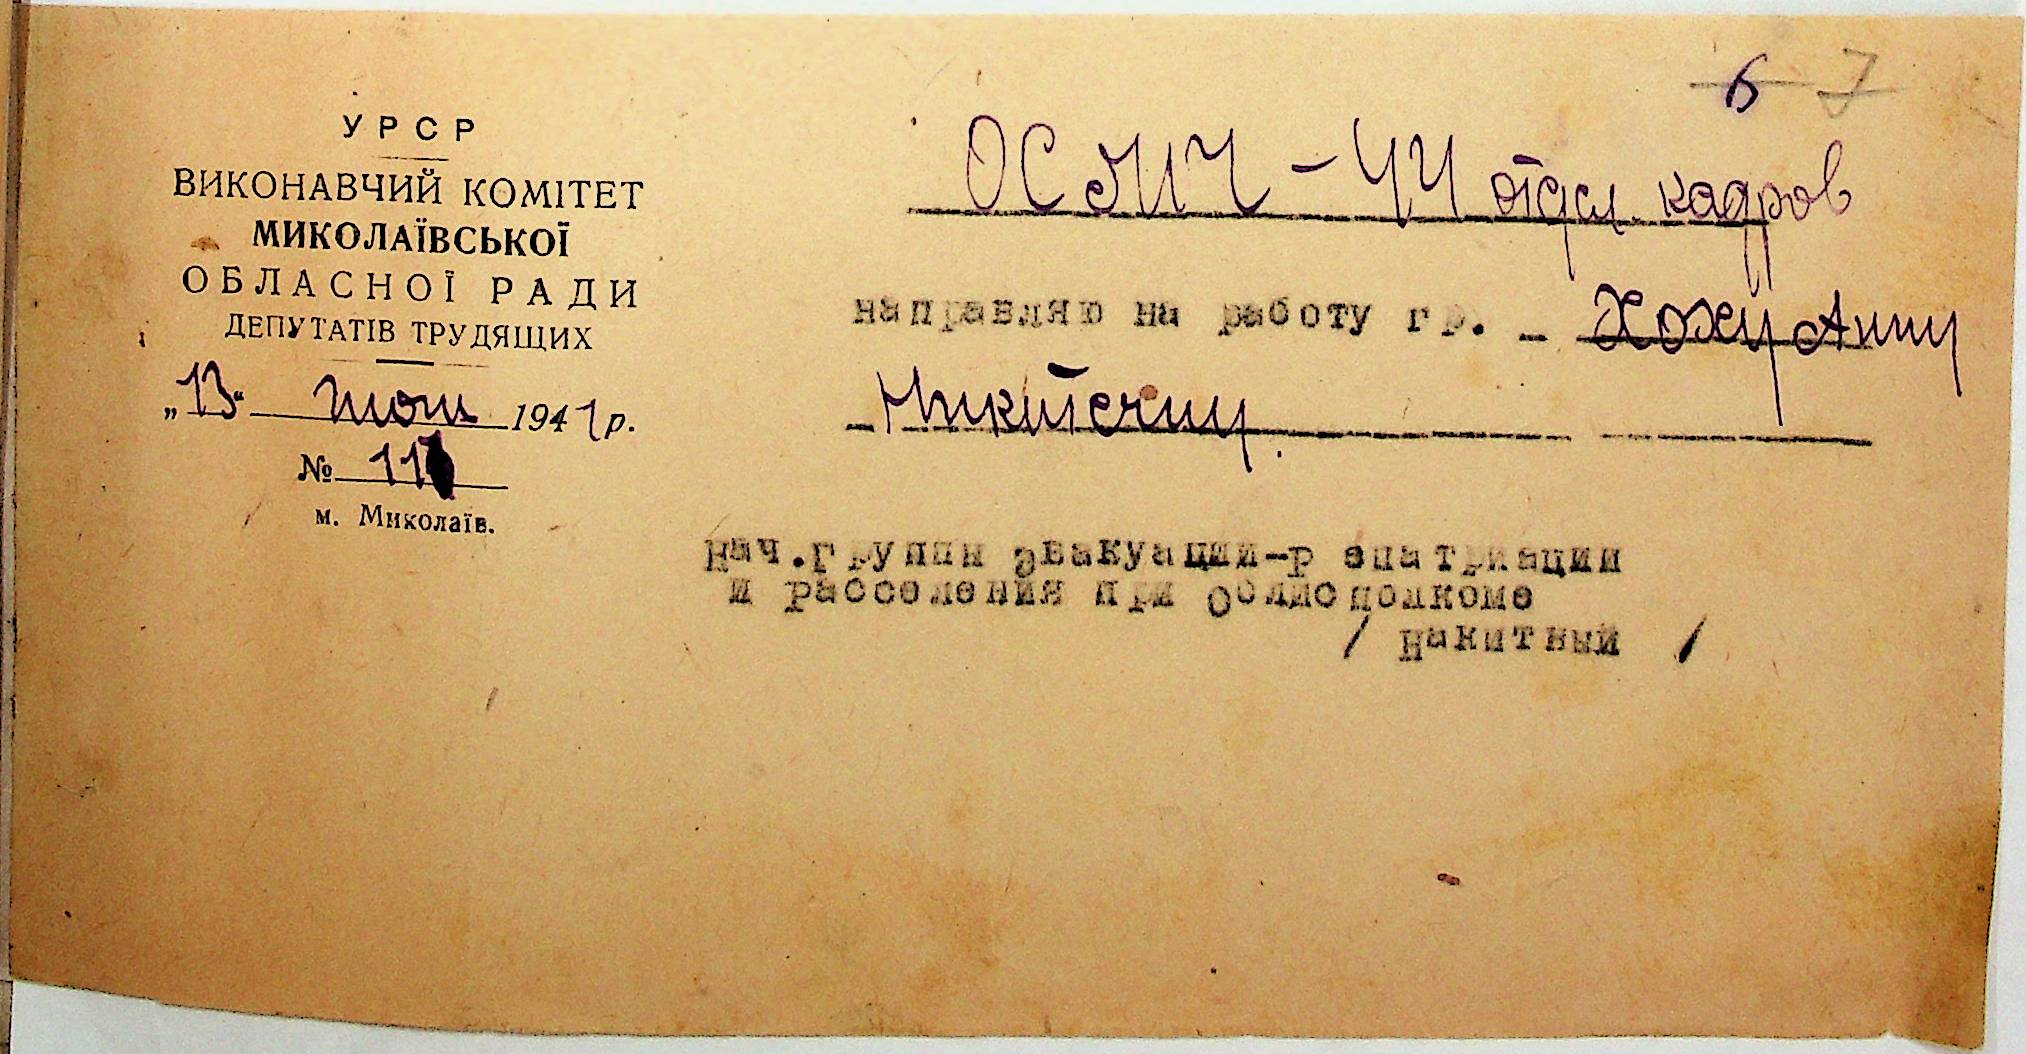 6 7
УРСР
ВИКОНАВЧИЙ КОМІТЕТ
МИКОЛАЇВСЬКОЇ
ОБЛАСНОЇ РАДИ
ДЕПУТАТІВ ТРУДЯЩИХ
„13“ 194 р.
№ 11
м. Миколаїв.
ОСМЧ - отдел. кадров
направляю на работу гр. - Хожу Анну
Микитечну.
Нач.группы эвакуации-р епатриации
и расселения при Облисполкоме
/ Накитный /